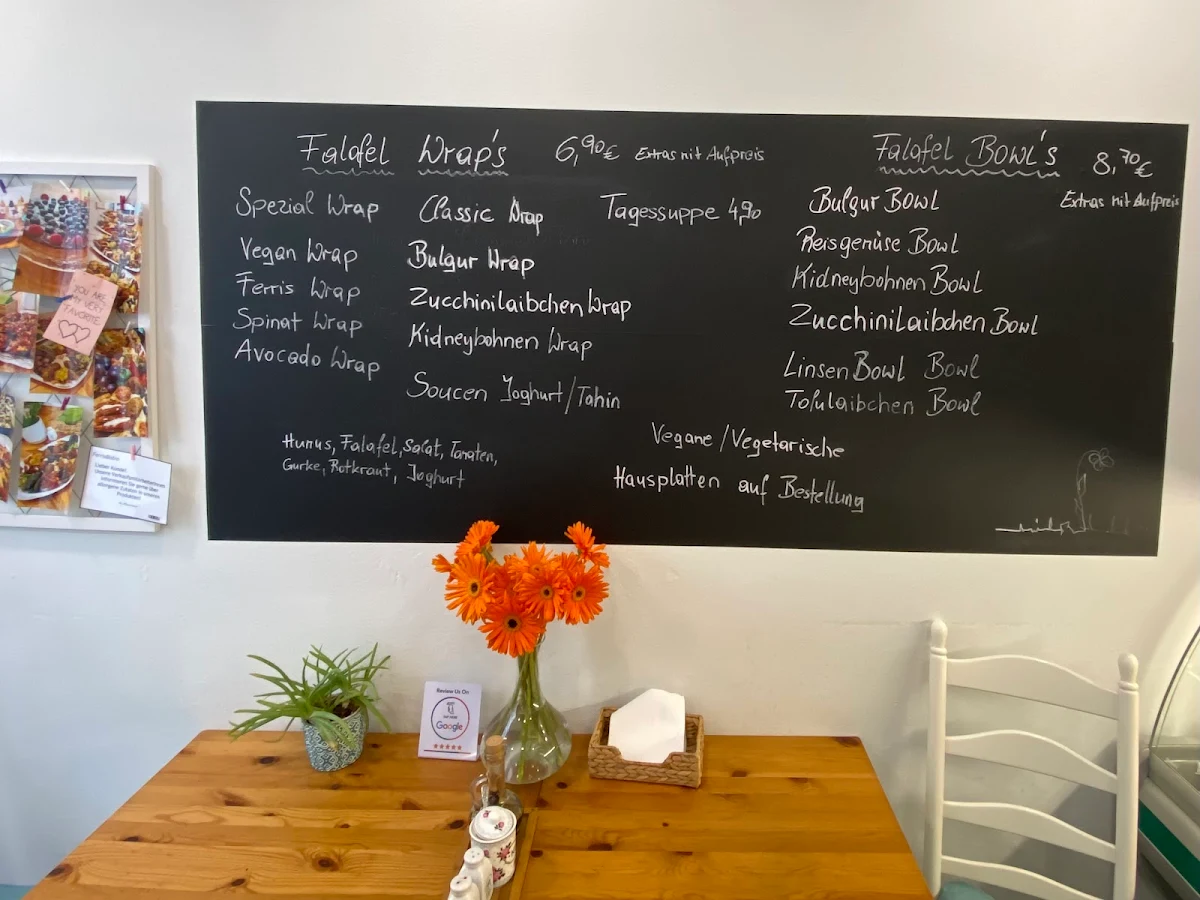 Falafel Wrap's 6,90€ Extras mit Aufpreis
Spezial Wrap
Vegan Wrap
Ferris Wrap
Spinat Wrap
Avocado Wrap
Classic Wrap
Bulgur Wrap
Zucchinilaibchen Wrap
Kidneybohnen Wrap
Soucen Joghurt/Tahin
Tagessuppe 4,90
Humus, Falafel, Salat, Tomaten,
Gurke, Rotkraut, Joghurt
Falafel Bowl's 8,70€
Extras mit Aufpreis
Bulgur Bowl
Reisgemüse Bowl
Kidneybohnen Bowl
Zucchinilaibchen Bowl
Linsen Bowl Bowl
Tofulaibchen Bowl
Vegane/Vegetarische
Hausplatten auf Bestellung
YOU ARE
MY VERY
FAVORITE
Review Us On
Google